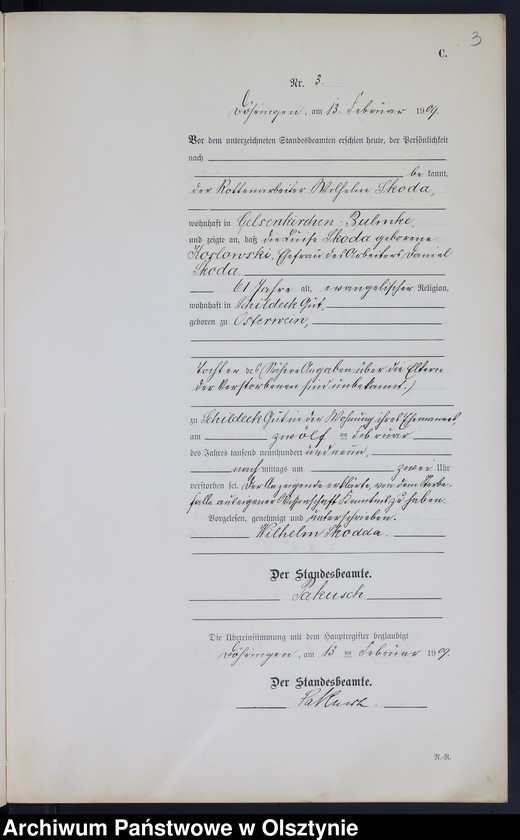 3
C.
Nr. 3.
Döhringen, am 13. Februar 1909.
Vor dem unterzeichneten Standesbeamten erschien heute, der Persönlichkeit
nach
be kannt,
der Rottenarbeiter Wilhelm Skoda,
wohnhaft in Gelsenkirchen-Bulmke,
und zeigte an, daß die Luise Skoda geborene
Koslowski, Ehefrau des Arbeiters Daniel
Skoda
61 Jahre alt, evangelischer Religion,
wohnhaft in Schildeck Gut,
geboren zu Osterwein,
Tochter des (Nähere Angaben über die Eltern
der Verstorbenen sind unbekannt.)
zu Schildeck Gut in der Wohnung ihres Ehemannes,
am zwölf ten Februar
des Jahres tausend neunhundert und neun,
nach mittags um zwei Uhr
verstorben sei. Der Anzeigende erklärte, von dem Sterbe-
falle aus eigener Wissenschaft Kenntnis zu haben.
Vorgelesen, genehmigt und unterschrieben.
Wilhelm Skodda
Der Standesbeamte.
Pakusch
Die Übereinstimmung mit dem Hauptregister beglaubigt
Döhringen, am 13 ten Februar 1909.
Der Standesbeamte.
Pakusch
R.-R.
Archiwum Państwowe w Olsztynie